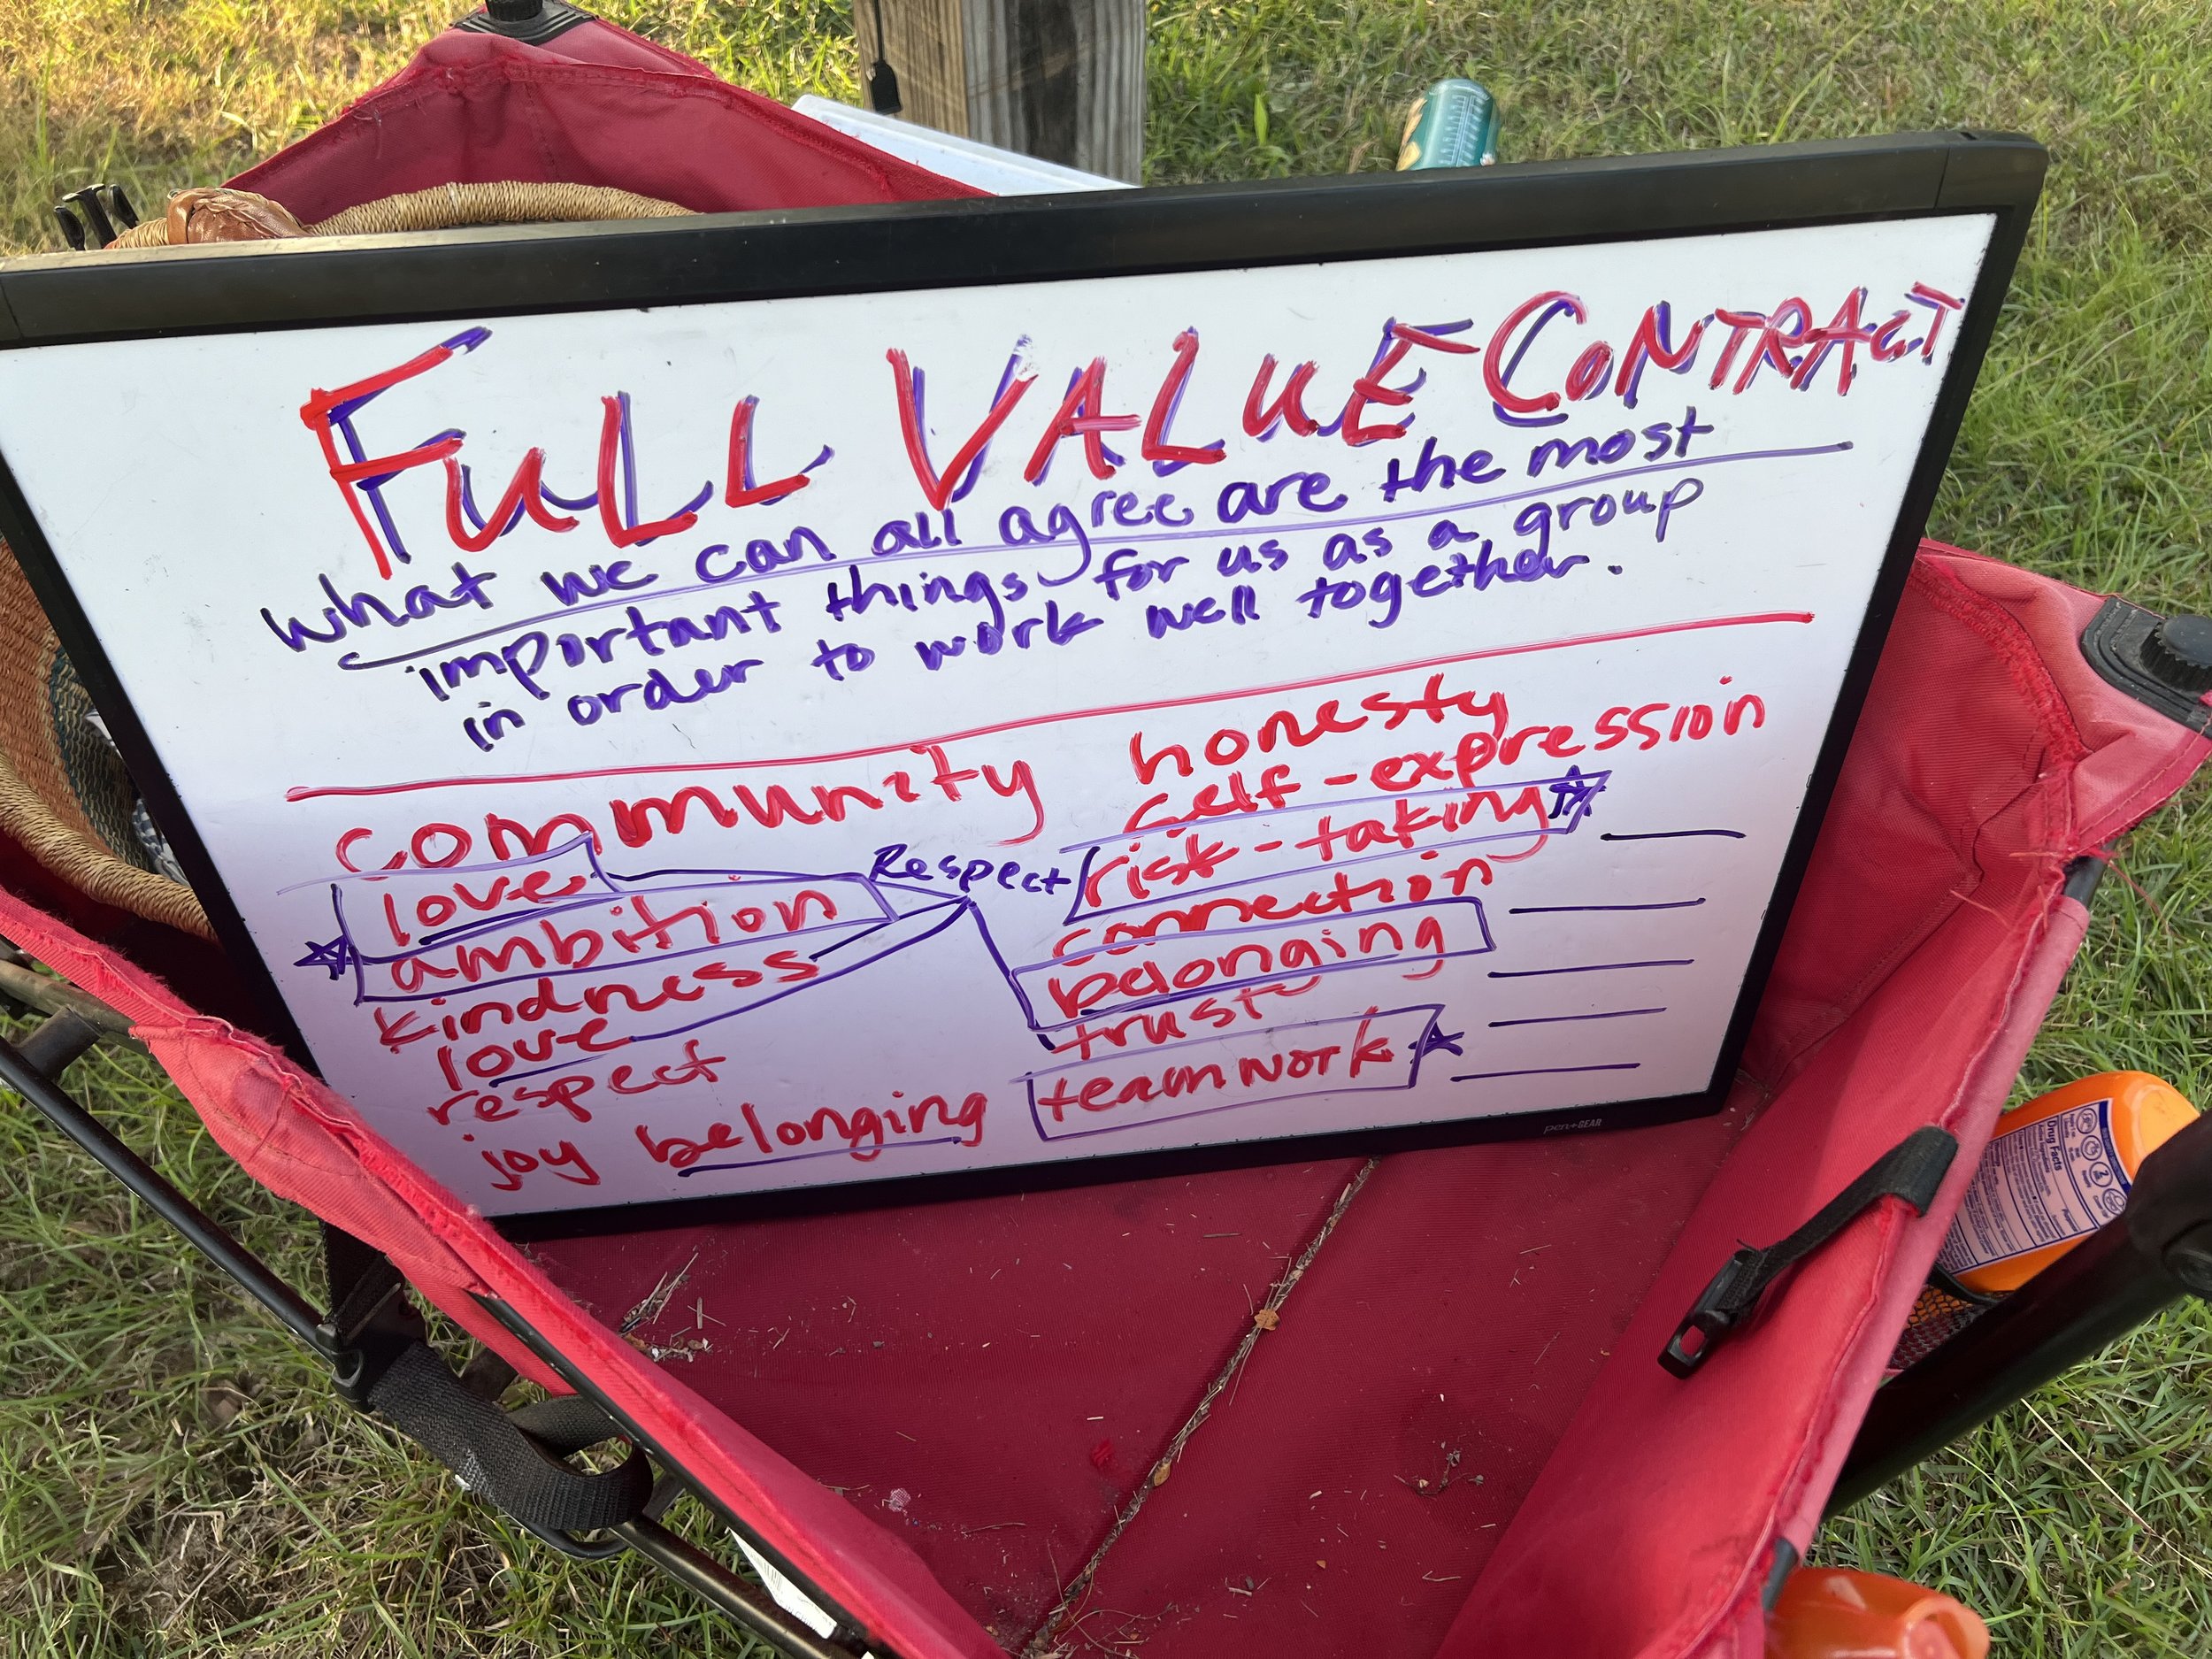 FULL VALUE CONTRACT
what we can all agree are the most
important things for us as a group
in order to work well together.
community
love
ambition
kindness
love
respect
joy belonging
Respect
honesty
self-expression
risk-taking
connection
belonging
trust
teamwork
pen+GEAR
Drug Facts